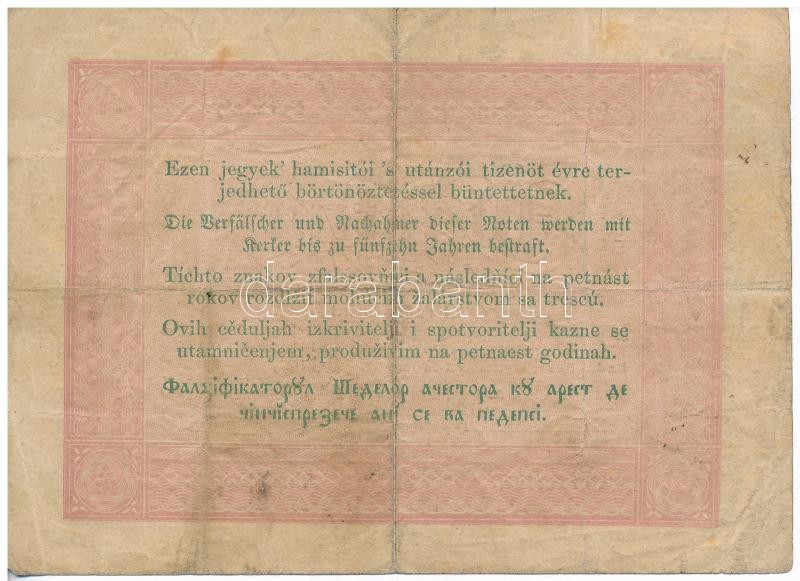 Ezen jegyek' hamisitói 's utánzói tizenöt évre ter-
jedhető börtönöztetéssel büntettetnek.
Die Verfälscher und Nachahmer dieser Noten werden mit
Kerker bis zu fünfzehn Jahren bestraft.
Tíchto znakov zfalssovňíci a následňíci na petnást
rokov rozdížiť mohúcím žalárstvom sa trescú.
darabanth
Ovih cĕduljah izkrivitelji i spotvoritelji kazne se
utamničenjem, produživim na petnaest godinah.
Фалꙅіфікаторꙋл Шеделор ачестора кꙋ арест де
чінчіспрезече анї се ва педепсі.